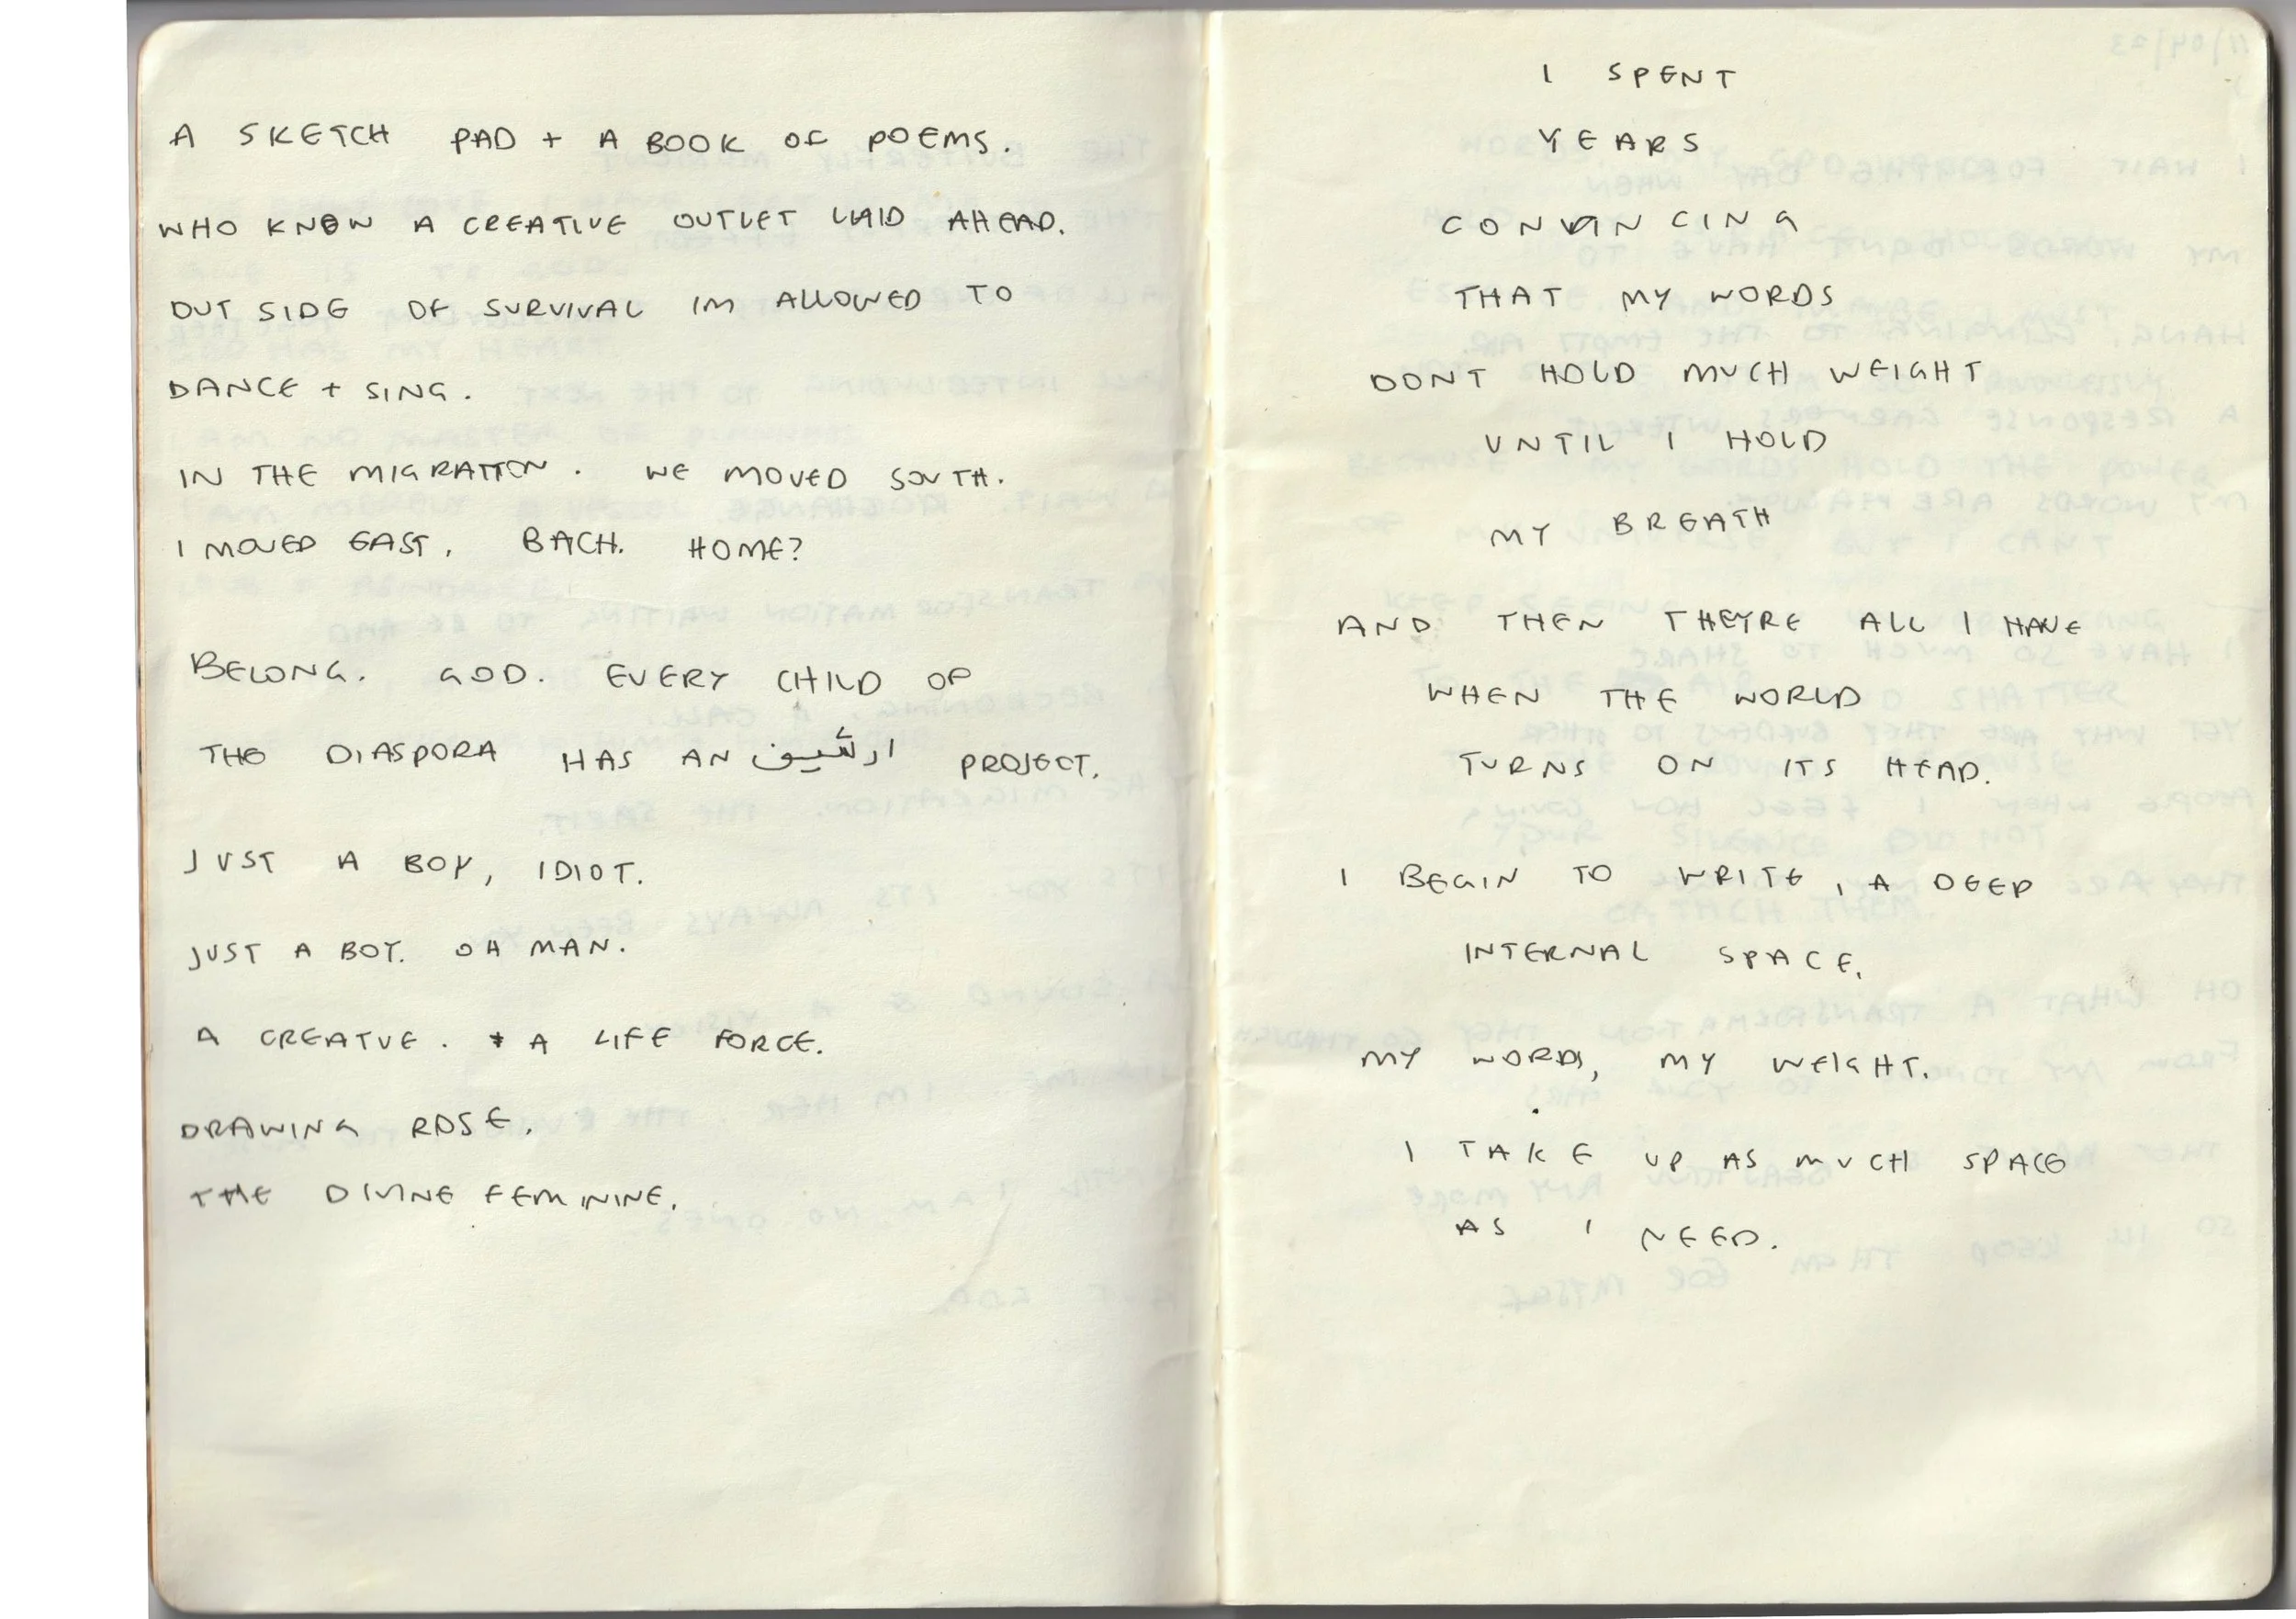 A SKETCH PAD + A BOOK OF POEMS.
WHO KNOW A CREATIVE OUTLET LAID AHEAD.
OUT SIDE OF SURVIVAL IM ALLOWED TO
DANCE + SING.
IN THE MIGRATION. WE MOVED SOUTH.
I MOVED EAST. BACH. HOME?
BELONG. GOD. EVERY CHILD OF
THE DIASPORA HAS AN ارشيف PROJECT.
JUST A BOY, IDIOT.
JUST A BOY. OH MAN.
A CREATVE. + A LIFE FORCE.
DRAWING ROSE.
THE DIVINE FEMININE.
I SPENT
YEARS
CONVINCING
THAT MY WORDS
DONT HOLD MUCH WEIGHT
UNTIL I HOLD
MY BREATH
AND THEN THEYRE ALL I HAVE
WHEN THE WORLD
TURNS ON ITS HEAD.
I BEGIN TO WRITE, A DEEP
INTERNAL SPACE.
MY WORDS, MY WEIGHT.
I TAKE UP AS MUCH SPACE
AS I NEED.